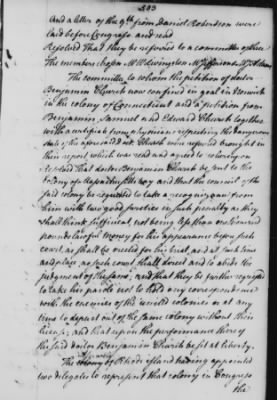 203
And a letter of the 9th from Daniel Robertson were
laid before Congress and read
Resolved That they be referred to a committee of three
The members chosen Mr Livingston Mr Jefferson & Mr Adams
The committee to whom the petition of doctor
Benjamin Church now confined in goal in Norwich
in the colony of Connecticut and a petition from
Benjamin, Samuel and Edward Church together
with a certificate from physicians respecting the dangerous
state of the aforesaid Church were referred brought in
their report, which was read and agreed to whereupon
Resolved That doctor Benjamin Church be sent to the
colony of Massachusetts bay and that the council of the
said colony be requested to take a recognizance from
him with two good sureties in such penalty as they
shall think sufficient, not being less than one thousand
pounds lawful money for his appearance before such
court as shall be erected for his trial and at such time
and place as such court shall direct and to abide the
judgment of the same; and that they be further requested
to take his parole not to hold any correspondence
with the enemies of the united colonies or at any
time to depart out of the same colony without their
license; and that upon the performance thereof
the said doctor Benjamin Church be set at liberty.
The colony of Rhode island having appointed
two delegates to represent that colony in Congress
the